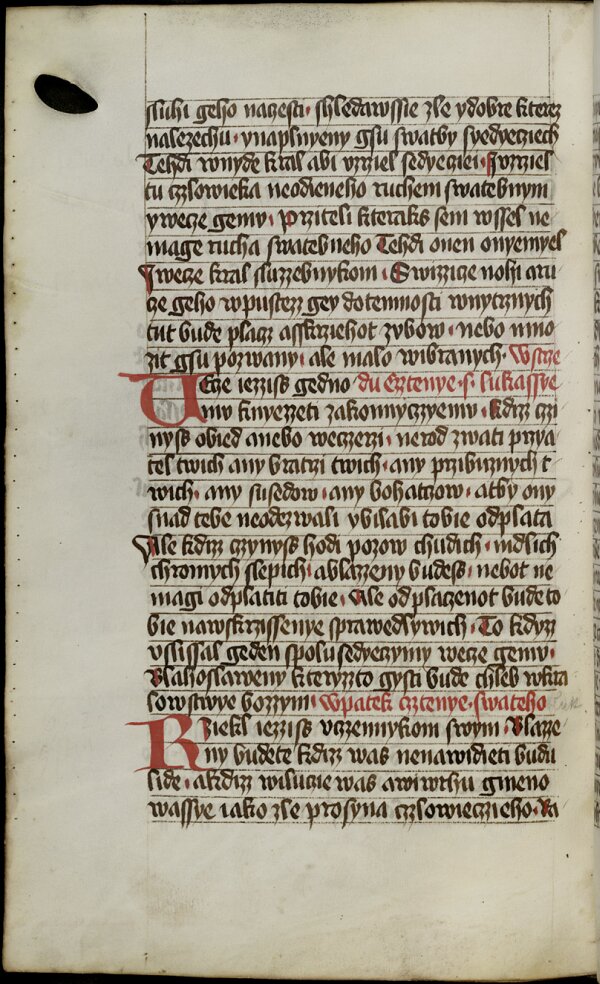 sluhi geho naczesti · shledawssie zle ydobre kterez
nalezechu · ynaplnyeny gsu swatby syedyeciech
Tehdi wnyde kral abi vrziel sedyeciei · Jvrziel
tu czlowieka neodieneho ruchem swatebnym
ywecze gemv · prziteli kteraks sem wssel ne
mage rucha swatebneho Tehdi onen onyemyel
Jwecze kral sluzzebnykom · Swizzicze nohi aru
cze geho wpustezz gey dotemnosti wnytrznych
tut bude placz asskrziehot zybow · nebo mno
zit gsu pozwany · ale malo wibranych · Wstrze
UEcze iezziss gedno du Ezteny̅e · s · lukassye
mv knyezzeti zakonnyczyemv · kdizz czi
nyss obied anebo weczerzi · nerod zwati przya
tel twich any bratrzi twich · any przibuznych t
wich · any susedow · any bohatczow · atby ony
snad tebe neodezwali ybilabi tobie odplata
Ale kdizz czynyss hodi pozow chudich · mdlich
chromych slepich · ablazzeny budess · nebot ne
magi odplatiti tobie · Ale odplaczenot bude to
bie nawskrzissenye sprawedlywich · To kdyzz
vslissal geden spolusedyeczymy wecze gemv ·
Blahoslaweny kteryzto gysti bude chleb wkra
lowstwye bozzym · Wpatek cztenye · swateho
RZiekl iezziss vczennykom swym · Blazze
ny budete kdizz was nenawidieti budu
lide · akdizz wiluczie was awiwrhu gmeno
wassye iako zle prosyna czlowieczieho · Ra